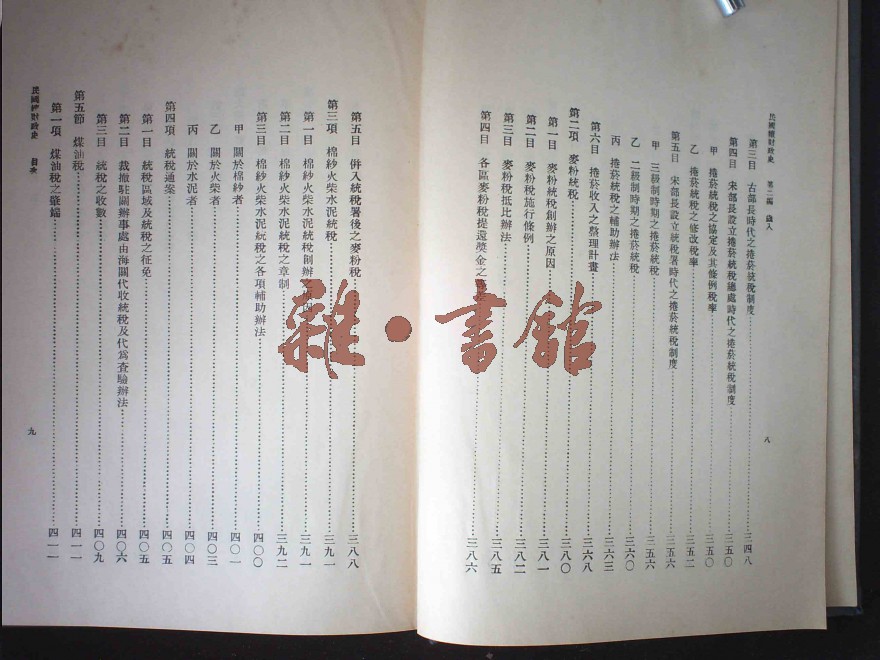 民國續財政史 第二編 歲入
八
第三目 古部長時代之捲菸統稅制度 三四八
第四目 宋部長設立捲菸統稅總處時代之捲菸統稅制度 三五〇
甲 捲菸統稅之協定及其條例稅率 三五〇
乙 捲菸統稅之修改稅率 三五二
第五目 宋部長設立統稅署時代之捲菸統稅制度 三五六
甲 三級制時期之捲菸統稅 三五六
乙 二級制時期之捲菸統稅 三六〇
丙 捲菸統稅之輔助辦法 三六三
第六目 捲菸收入之整理計畫 三六八
第二項 麥粉統稅 三八〇
第一目 麥粉統稅創辦之原因 三八一
第二目 麥粉稅施行條例 三八二
第三目 麥粉稅抵比辦法 三八五
第四目 各區麥粉稅提還獎金之 三八六
第五目 併入統稅署後之麥粉稅 三八八
第三項 棉紗火柴水泥統稅 三九一
第一目 棉紗火柴水泥統稅創辦之原因 三九一
第二目 棉紗火柴水泥統稅之章制 三九二
第三目 棉紗火柴水泥統稅之各項輔助辦法 四〇〇
甲 關於棉紗者 四〇一
乙 關於火柴者 四〇三
丙 關於水泥者 四〇四
第四項 統稅通案 四〇五
第一目 統稅區域及統稅之征免 四〇五
第二目 裁撤駐關辦事處由海關代收統稅及代為查驗辦法 四〇六
第三目 統稅之收數 四〇九
第五節 煤油稅 四一一
第一項 煤油稅之肇端 四一一
民國續財政史 目次
九
雜·書館